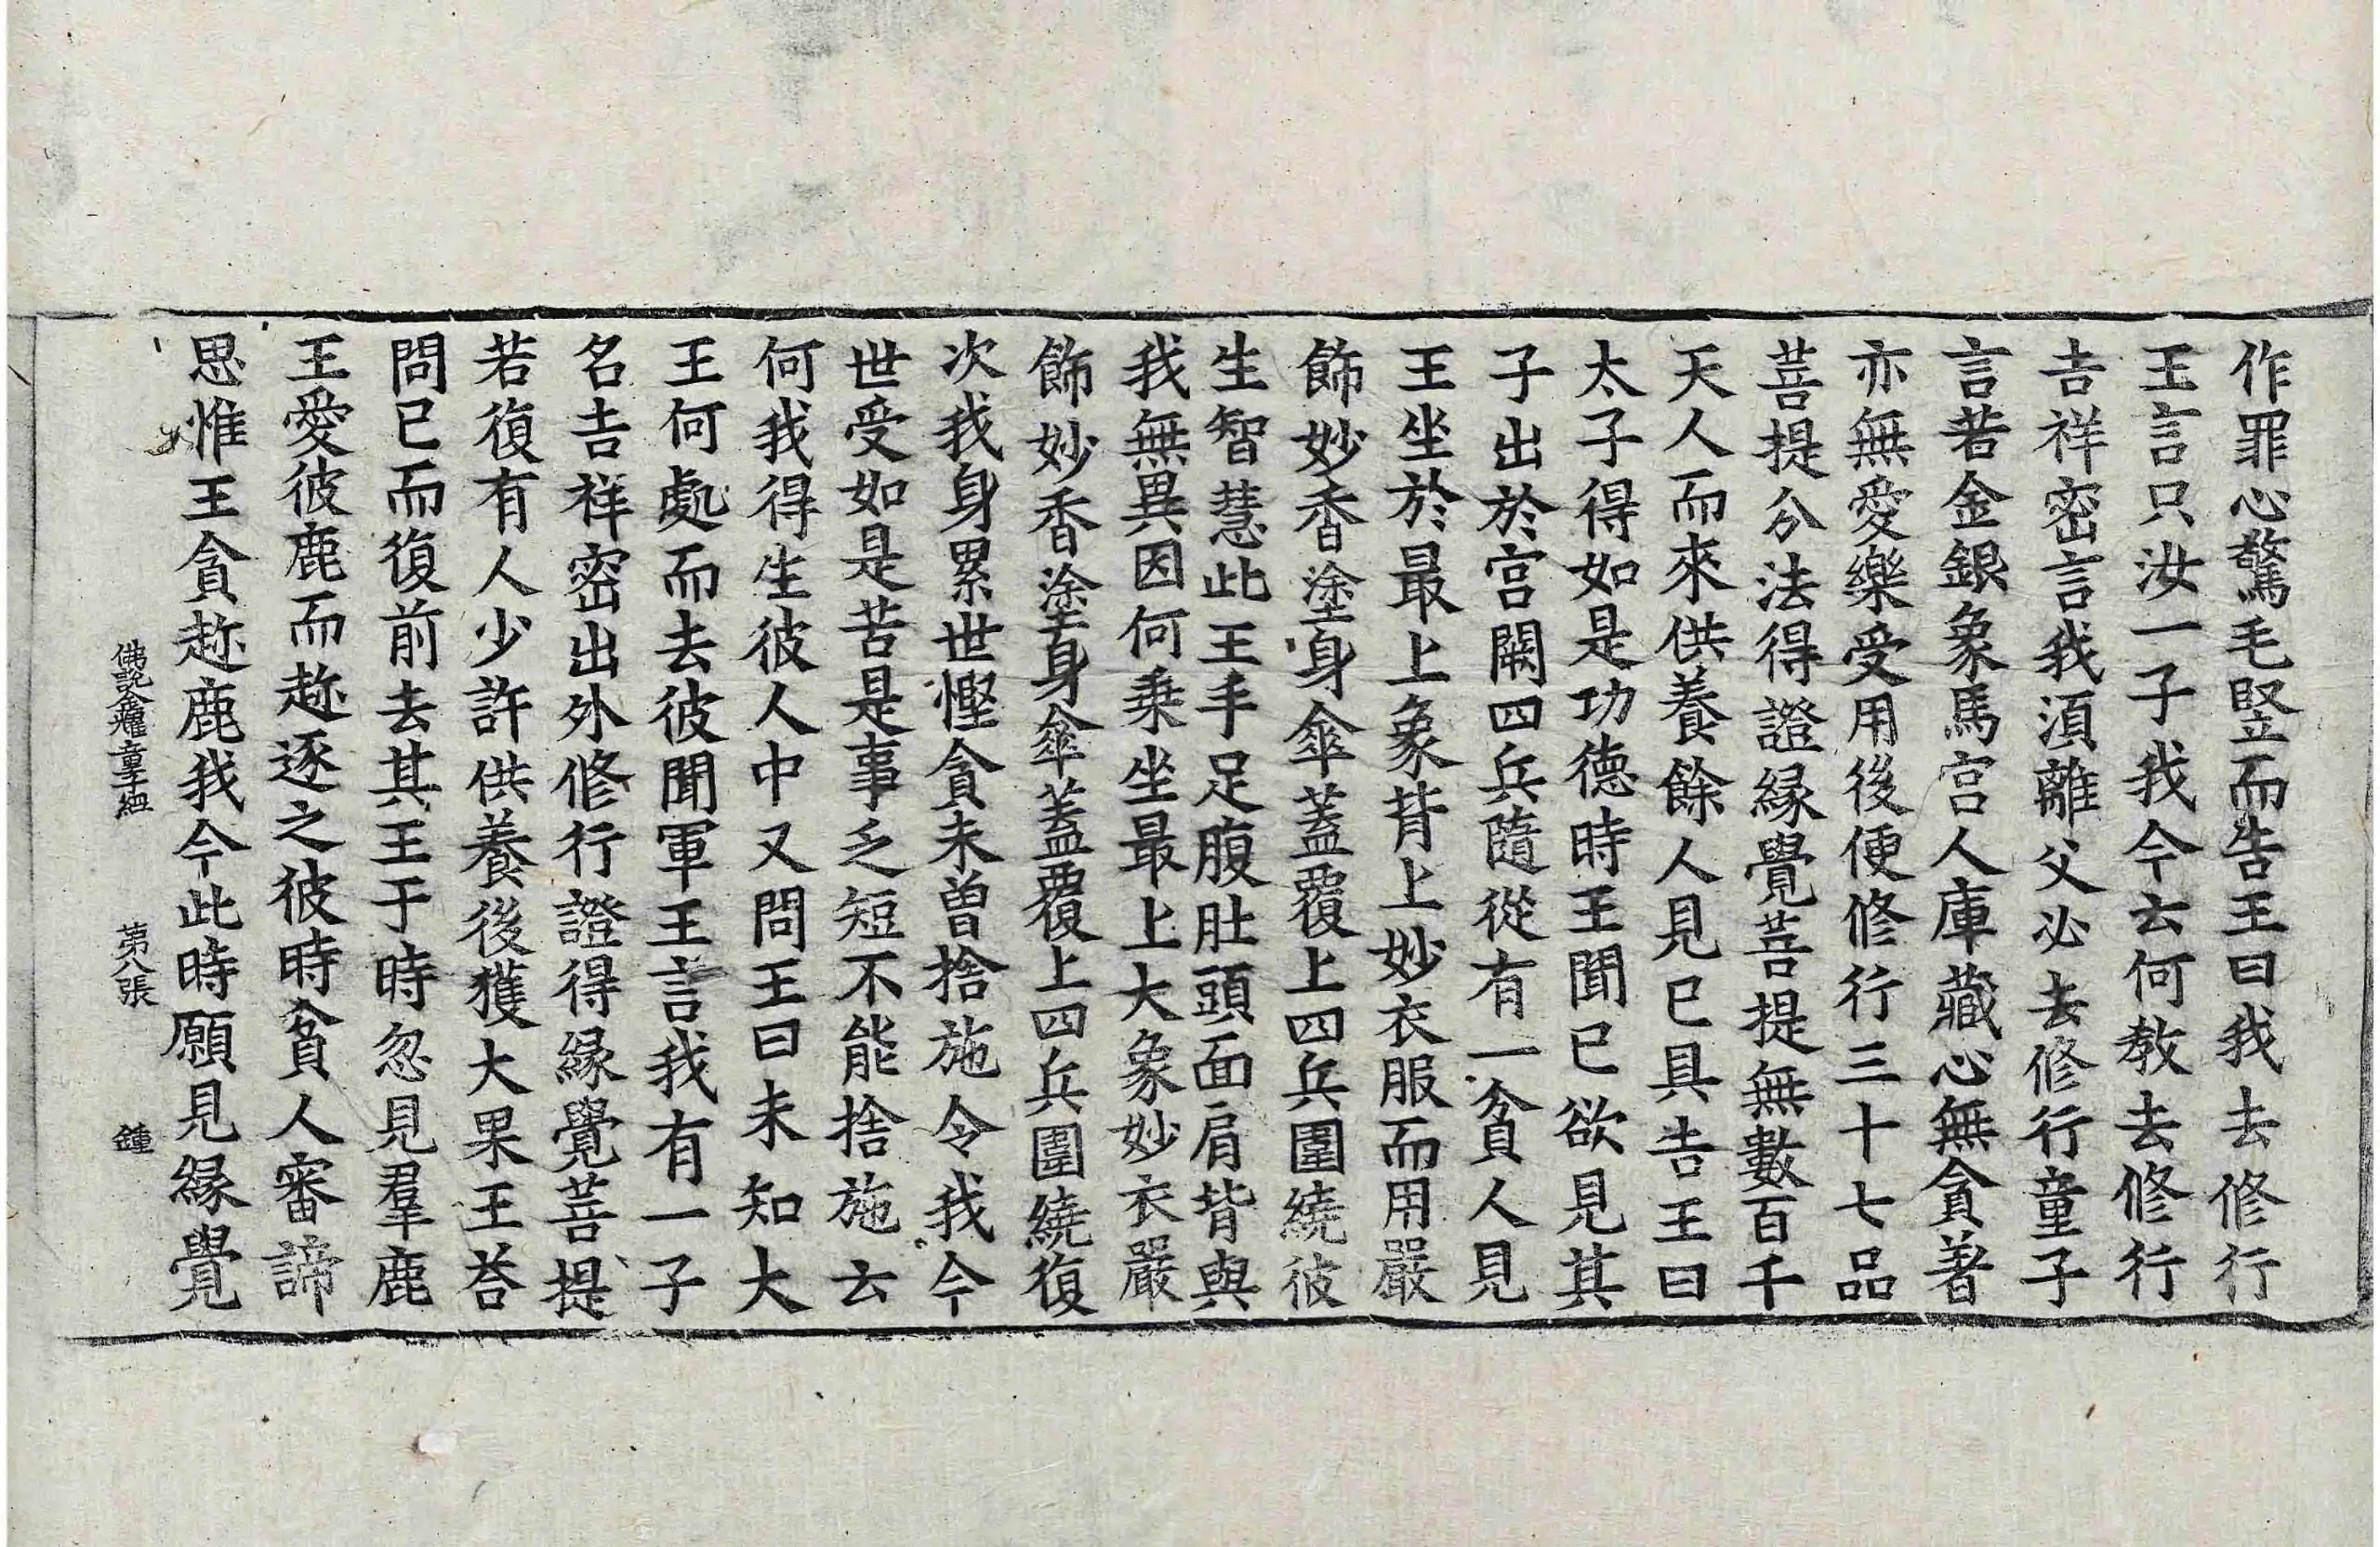 作罪心驚毛竪而告王曰我去修行
王言只汝一子我今云何教去修行
吉祥密言我湏離父必去修行童子
言若金銀象馬宫人庫藏心無貪著
亦無愛樂受用後便修行三十七品
菩提分法得證縁覺菩提無數百千
天人而來供養餘人見已具告王曰
太子得如是功德時王聞已欲見其
子出於宫闕四兵隨從有一貧人見
王坐於最上象背上妙衣服而用嚴
飾妙香塗身傘蓋覆上四兵圍繞彼
生智慧此王手足腹肚頭面肩背與
我無異因何乗坐最上大象妙衣嚴
飾妙香塗身傘蓋覆上四兵圍繞復
次我身累世慳貪未曽捨施令我今
世受如是苦是事乏短不能捨施云
何我得生彼人中又問王曰未知大
王何處而去彼聞軍王言我有一子
名吉祥密出外修行證得縁覺菩提
若復有人少許供養後獲大果王荅
問已而復前去其王于時忽見羣鹿
王愛彼鹿而趂逐之彼時貧人審諦
思惟王貪趂鹿我今此時願見縁覺
佛說金耀童子經　第八張　鍾